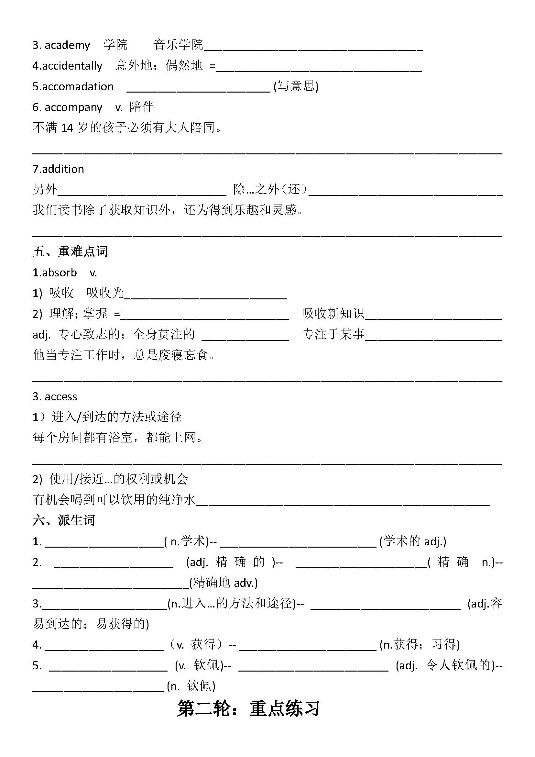 3. academy 学院 音乐学院___________________________________
4.accidentally 意外地；偶然地 =_________________________________
5.accomadation _______________________ (写意思)
6. accompany v. 陪伴
不满 14 岁的孩子必须有大人陪同。
___________________________________________________________________________
7.addition
另外___________________________ 除…之外（还）_______________________________
我们读书除了获取知识外，还为得到乐趣和灵感。
___________________________________________________________________________
五、重难点词
1.absorb v.
1) 吸收 吸收光__________________________
2) 理解；掌握 =___________________________ 吸收新知识______________________
adj. 专心致志的；全身贯注的 ______________ 专注于某事______________________
他当专注工作时，总是废寝忘食。
___________________________________________________________________________
3. access
1）进入/到达的方法或途径
每个房间都有浴室，都能上网。
___________________________________________________________________________
2) 使用/接近…的权利或机会
有机会喝到可以饮用的纯净水_______________________________________________
六、派生词
1. ___________________( n.学术)-- _________________________ (学术的 adj.)
2. ___________________ (adj. 精 确 的 )-- _____________________( 精 确 n.)--
_________________________(精确地 adv.)
3.____________________(n.进入…的方法和途径)-- ________________________ (adj.容
易到达的；易获得的)
4. ___________________（v. 获得）-- ______________________ (n.获得；习得)
5. ___________________ (v. 钦佩)-- ________________________ (adj. 令人钦佩的)--
_____________________ (n. 钦佩)
第二轮：重点练习